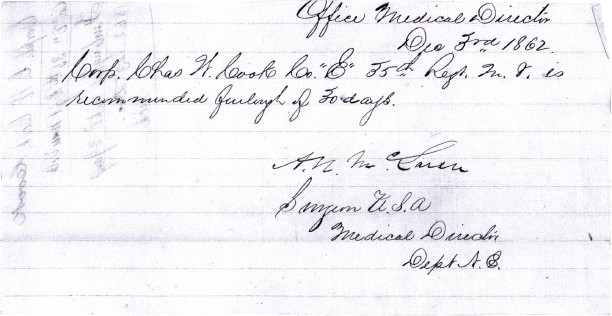 Office Medical Director
Dec 3rd 1862.
Corp. Chas W. Cook Co. "E" 35th Regt. M. V. is
recommended furlough of 30 days.
A. N. McLaren
Surgeon U.S.A
Medical Director
Dept N. E.